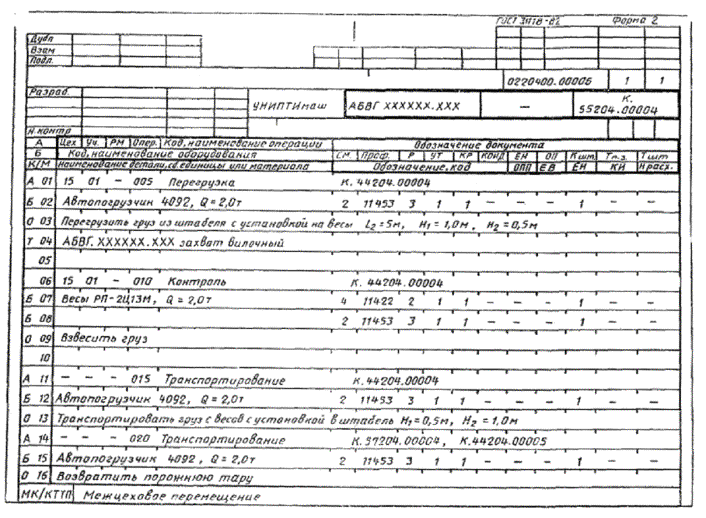 ГОСТ 3.1118-82 Форма 2
Дубл
Взам
Подл.
0220400.00006 1 1
Разраб.
УНИПТИмаш АБВГ XXXXXX.XXX — К. 55204.00004
Н контр
А Цех Уч. РМ Опер. Код, наименование операции Обозначение документа
Б Код, наименование оборудования СМ. Проф. Р УТ КР КОИД ЕН ОП Кшт. Тп.з. Тшт
К/М Наименование детали, сб. единицы или материала Обозначение, код ОПП ЕВ ЕН КИ Нрасх.
А 01 15 01 — 005 Перегрузка К. 44204.00004
Б 02 Автопогрузчик 4092, Q = 2,0т 2 11453 3 1 1 — — — 1 — —
О 03 Перегрузить груз из штабеля с установкой на весы L2 = 5м, H1 = 1,0м, H2 = 0,5м
Т 04 АБВГ. XXXXXX.XXX захват вилочный
05
06 15 01 — 010 Контроль К. 44204.00004
Б 07 Весы РП-2Ц13М, Q = 2,0т 4 11422 2 1 1 — — — 1 — —
Б 08 2 11453 3 1 1 — — — 1 — —
О 09 Взвесить груз
10
А 11 — — — 015 Транспортирование К.44204.00004
Б 12 Автопогрузчик 4092, Q = 2,0т 2 11453 3 1 1 — — — 1 — —
О 13 Транспортировать груз с весов с установкой в штабель H1 = 0,5м, H2 = 1,0м
А 14 — — — 020 Транспортирование К.57204.00004, К.44204.00005
Б 15 Автопогрузчик 4092, Q = 2,0т 2 11453 3 1 1 — — — 1 — —
О 16 Возвратить порожнюю тару
МК/КТТП Межцеховое перемещение